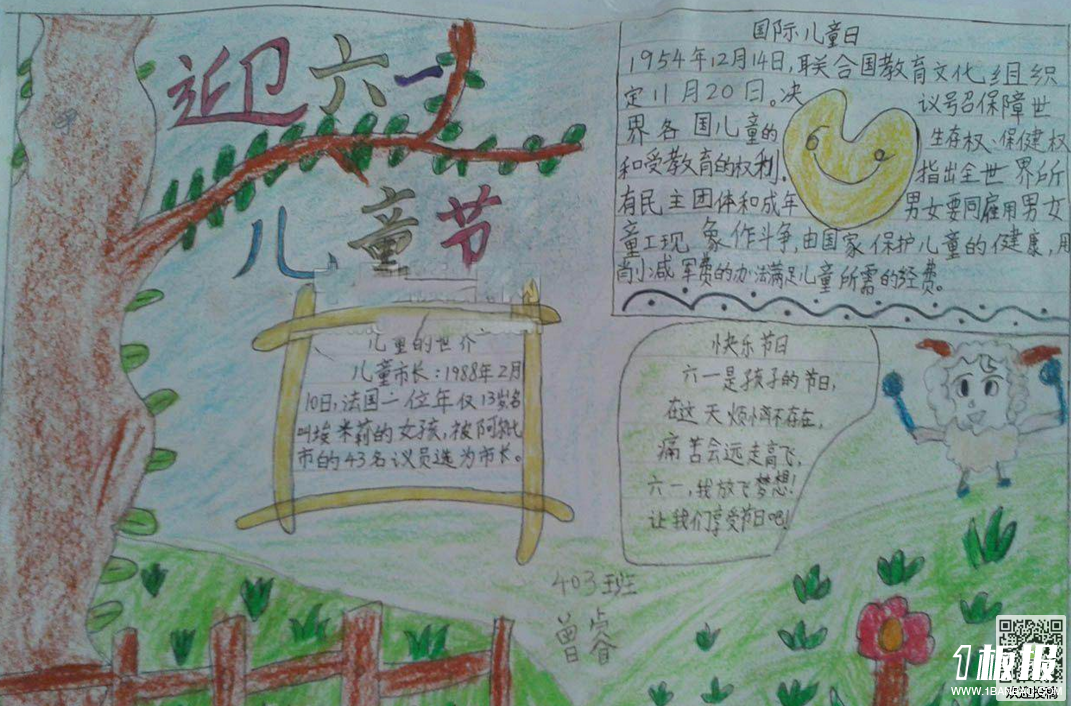 迎六一
儿童节
国际儿童日
1954年12月14日,联合国教育文化组织
定11月20日。决议号召保障世
界各国儿童的生存权、保健权
和受教育的权利。指出全世界所
有民主团体和成年男女要同雇用男女
童工现象作斗争,由国家保护儿童的健康,用
削减军费的办法满足儿童所需的经费。
儿童的世界
儿童市长:1988年2月
10日,法国一位年仅13岁名
叫埃米莉的女孩,被阿
市的43名议员选为市长。
快乐节日
六一是孩子的节日,
在这天烦恼不存在,
痛苦会远走高飞,
六一,我放飞梦想!
让我们享受节日吧!
403班
曾
1板报
WWW.1BANBAO.COM
欢迎投稿